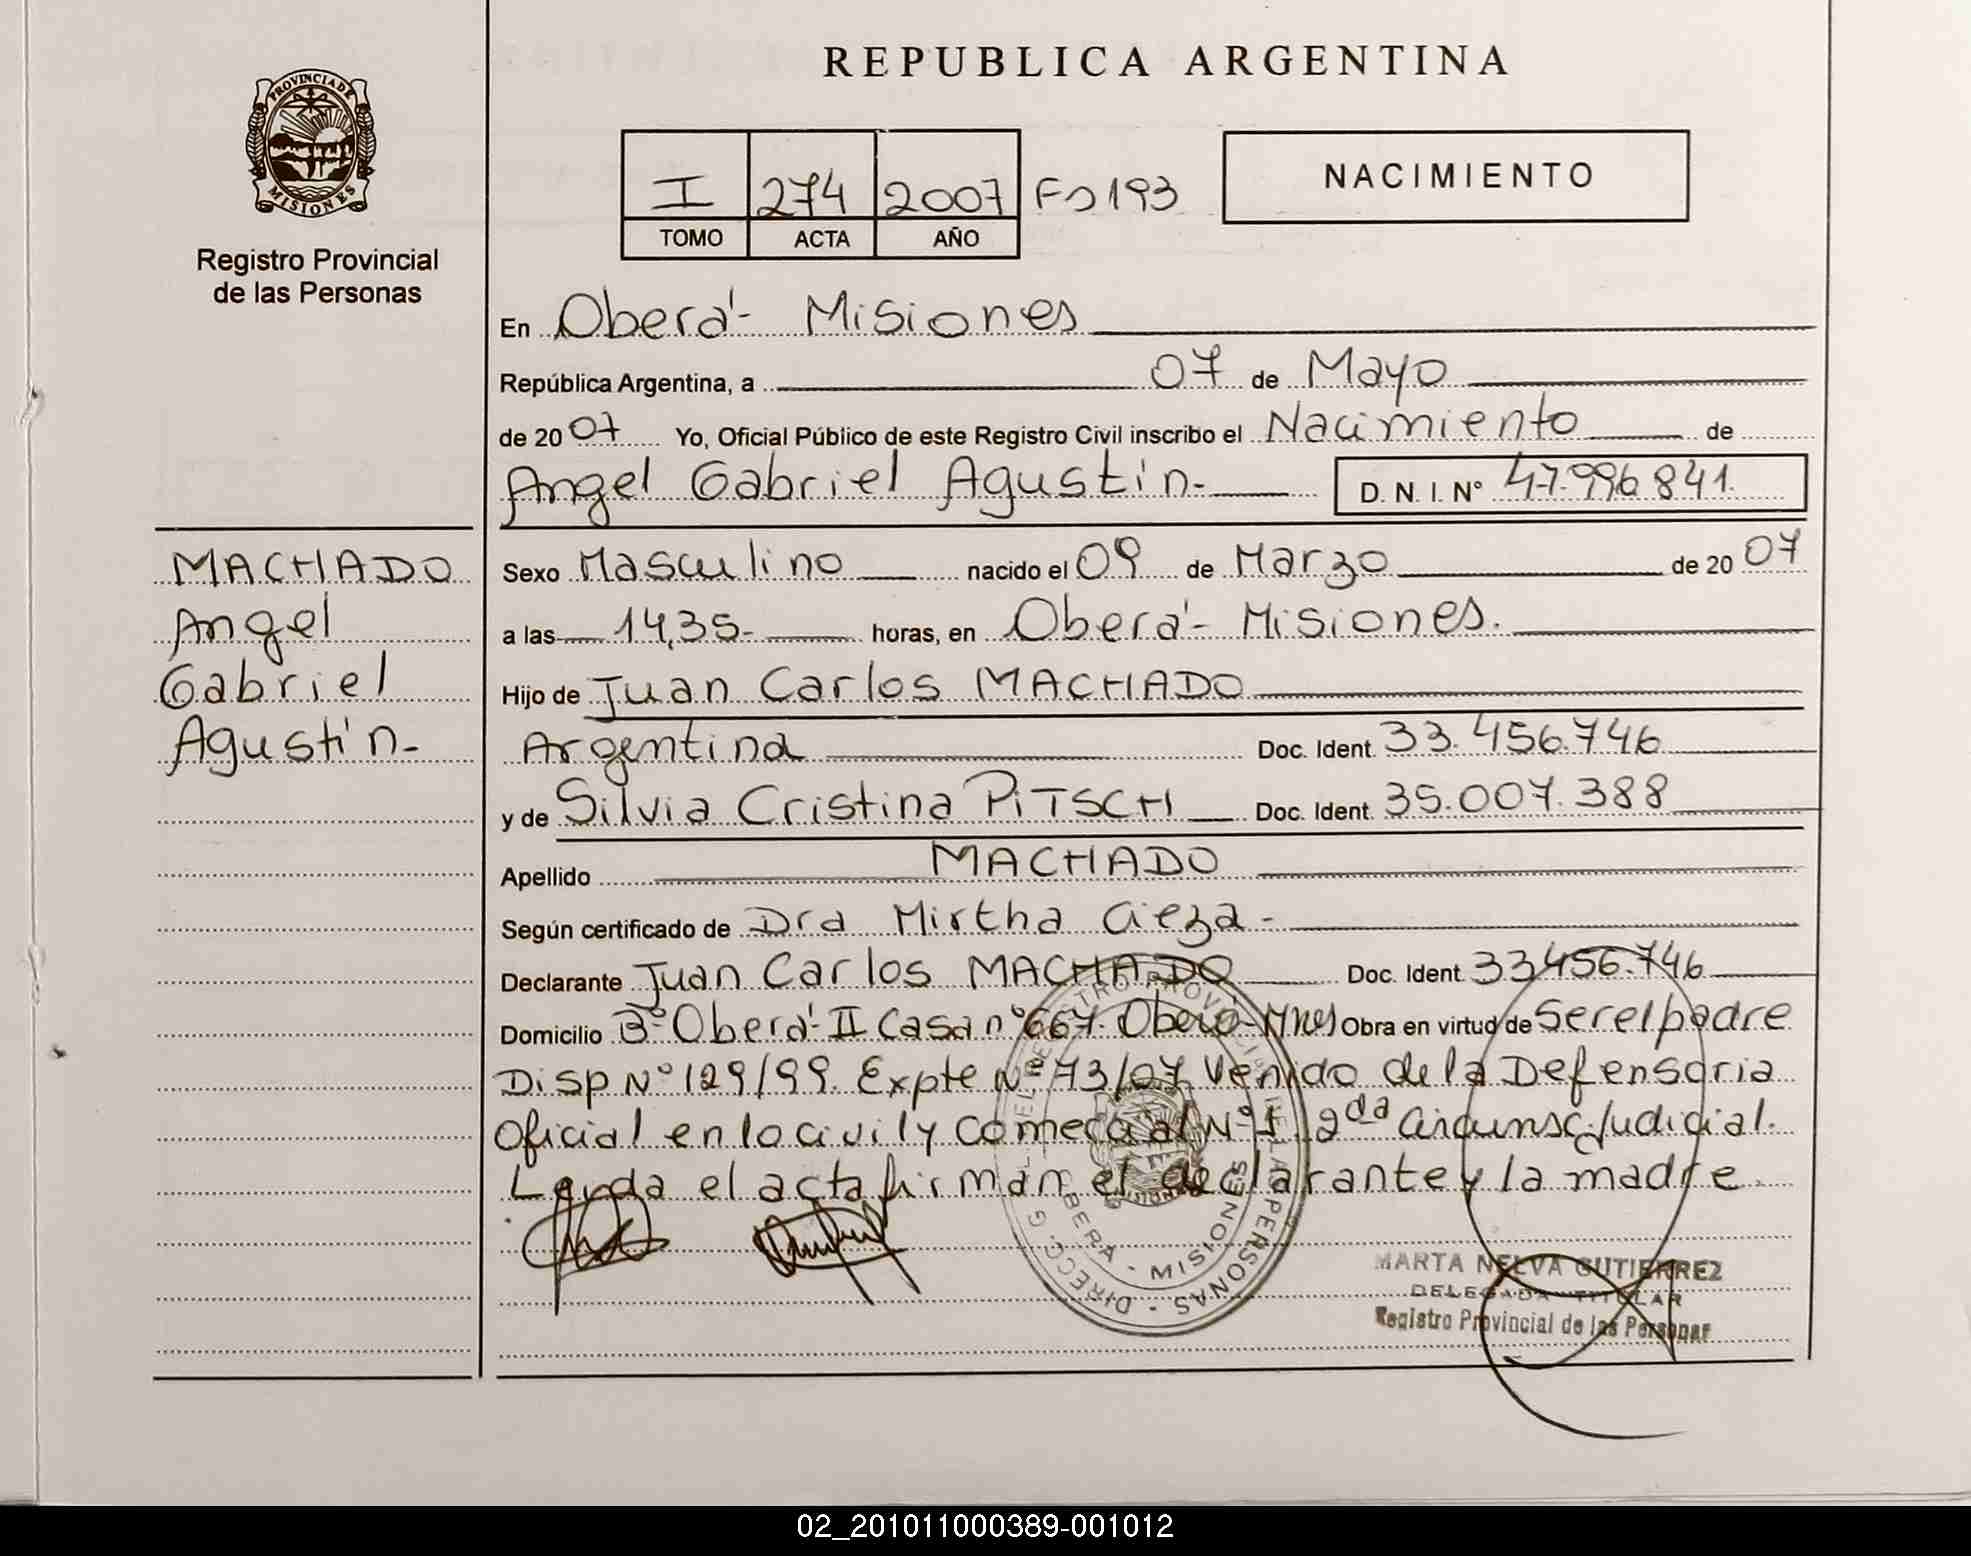 REPUBLICA ARGENTINA
PROVINCIA DE
MISIONES
Registro Provincial
de las Personas
I 274 2007 Fo 193
TOMO ACTA AÑO
NACIMIENTO
En Oberá - Misiones
República Argentina, a 07 de Mayo
de 2007 Yo, Oficial Público de este Registro Civil inscribo el Nacimiento de
Angel Gabriel Agustín- D. N. I. N° 47.996.841.
MACHADO
Angel
Gabriel
Agustín-
Sexo Masculino nacido el 09 de Marzo de 2007
a las 14,35- horas, en Oberá - Misiones.
Hijo de Juan Carlos MACHADO
Argentina Doc. Ident. 33.456.746
y de Silvia Cristina PiTSCH Doc. Ident. 35.007.388
Apellido MACHADO
Según certificado de Dra Mirtha Cieza -
Declarante Juan Carlos MACHADO Doc. Ident. 33456.746
Domicilio B° Oberá - II Casa n° 667. Oberá - Mnes Obra en virtud de Ser el padre
Disp N° 129/99. Expte N° 73/07 Venido de la Defensoria
Oficial en lo civil y Comercial N° 1 2da Circunsc. Judicial.
Leida el acta firman el declarante y la madre.
MARTA NELVA GUTIERREZ
DELEGADA TITULAR
Registro Provincial de las Personas
OBERA - MISIONES
02_201011000389-001012